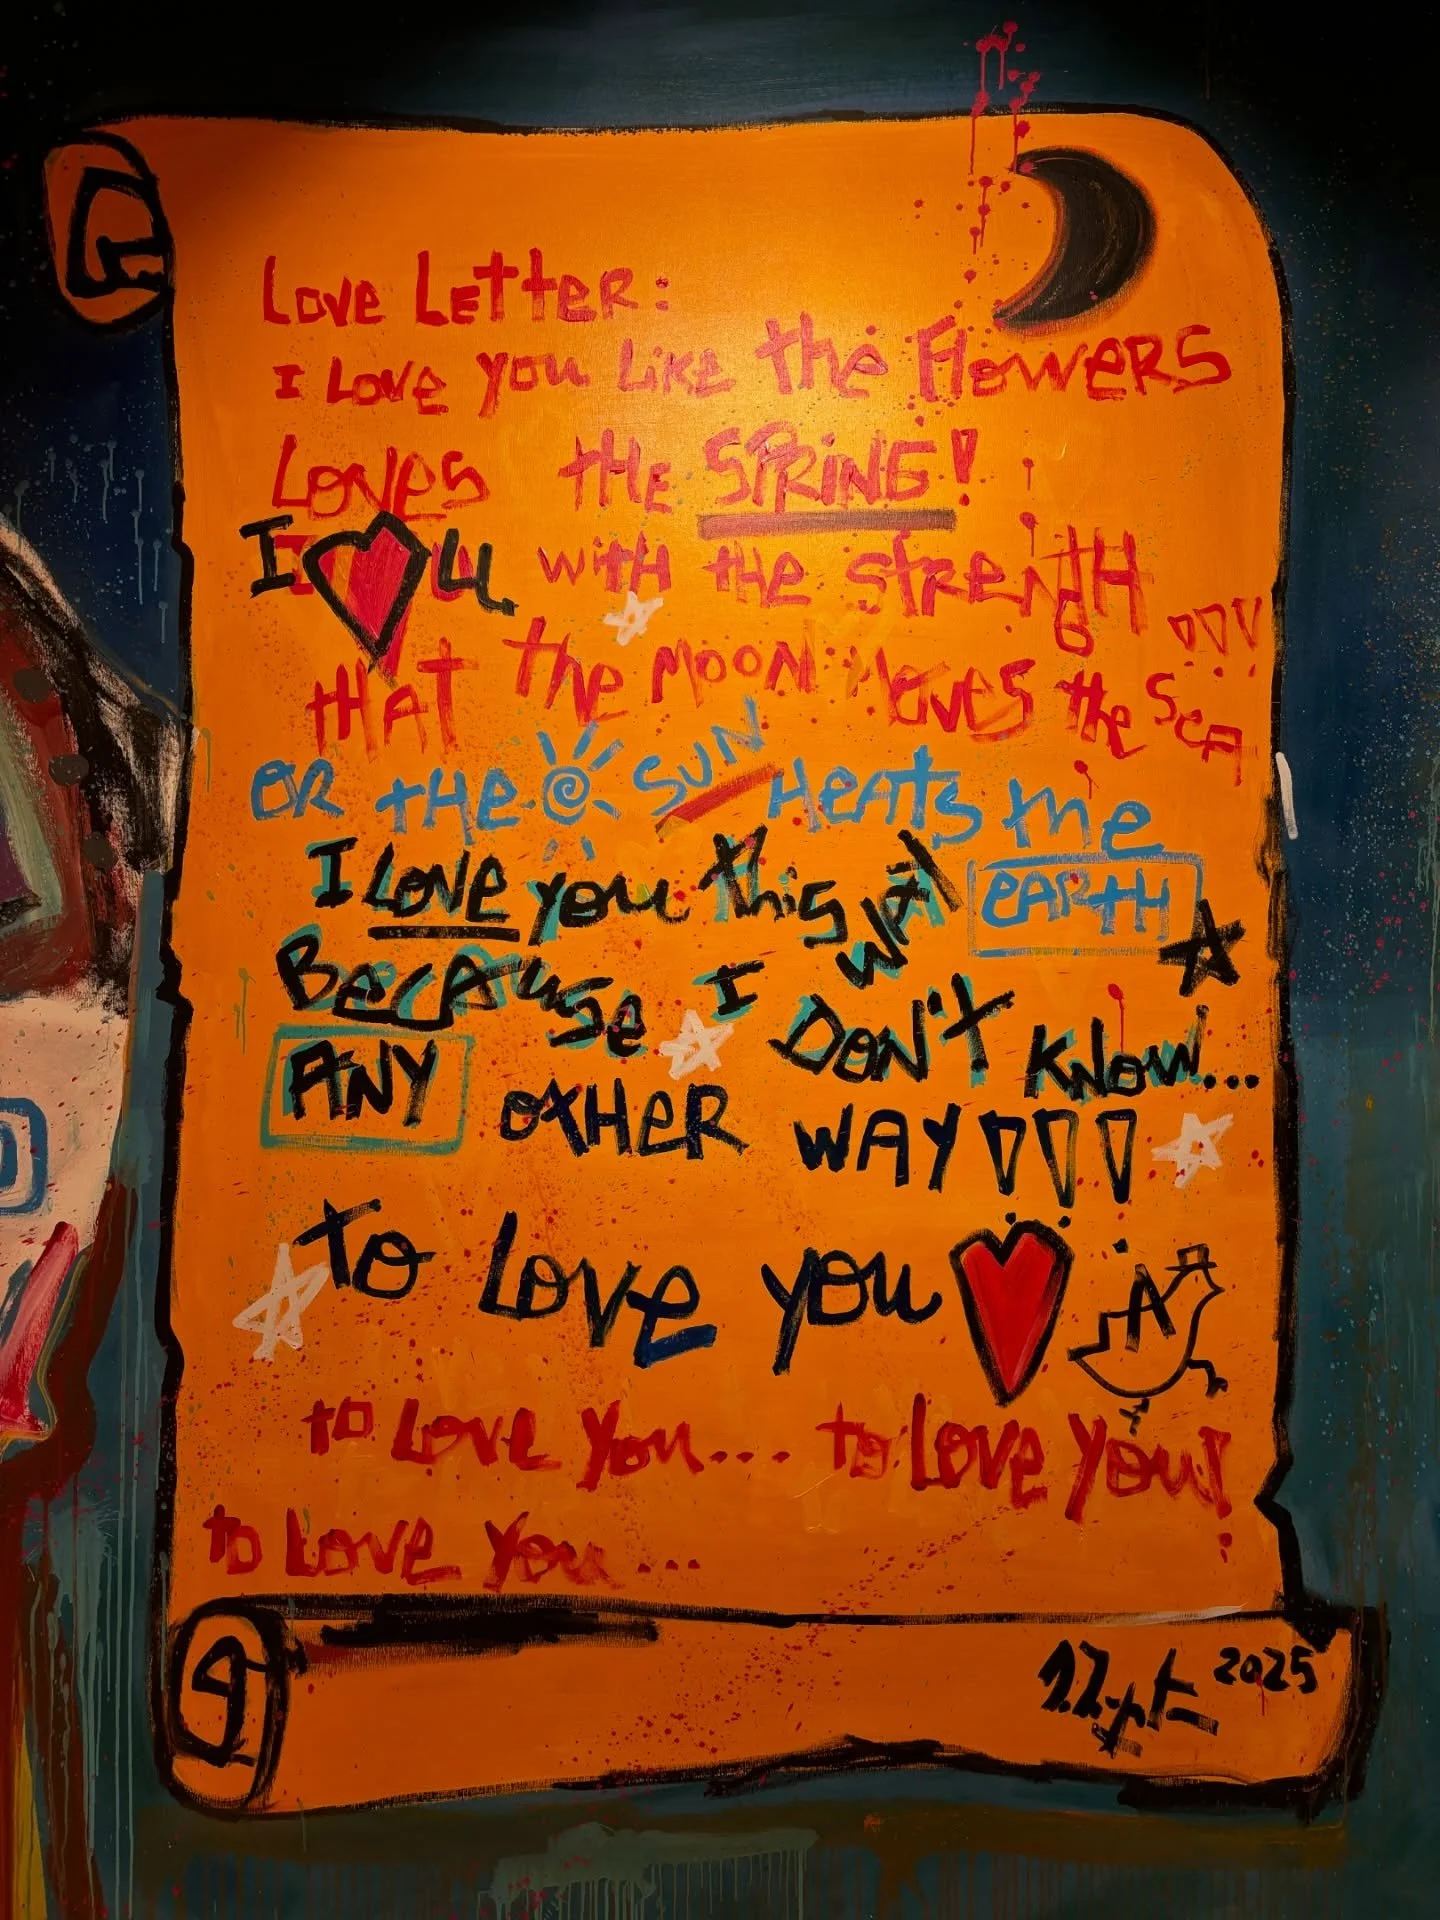 Love Letter:
I Love you Like the Flowers
Loves the SPRING!
I ❤ U with the strength
that the moon moves the sea !!!
OR the SUN Heats me
I Love you this way EARTH
Because I Don't Know...
ANY other WAY!!!
to Love you
A
to Love you... to Love you!
to Love you...
2025